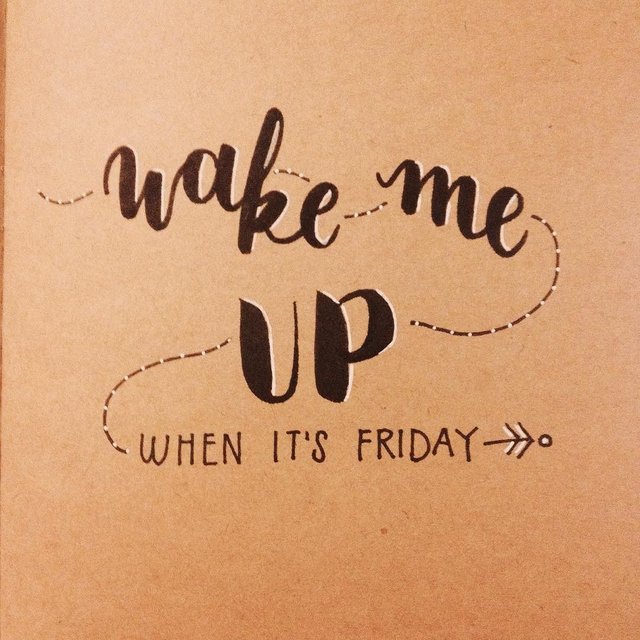 wake me
UP
WHEN IT'S FRIDAY